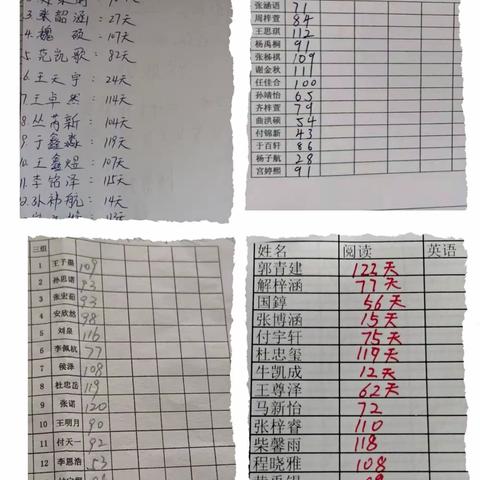 3. 张韶涵：27天
4. 魏硕：107天
5. 范凯歌：82天
6 王天宇：24天
7 王卓然：114天
8 丛芮新：104天
9 于鑫淼：119天
10 王鑫煜：107天
11. 李铭泽：115天
12. 孙祎航：14天
张涵语 71
周梓萱 84
王思琪 112
杨禹桐 91
张栋祺 109
谢金秋 111
任佳合 100
孙靖怡 65
齐梓萱 79
曲洪硕 54
付锦新 43
于百轩 86
杨子航 28
宫婷熙 91
三组
1 王子墨 109
2 孙思诺 93
3 张宏茹 93
4 安欣然 98
5 刘泉 116
6 李佩杭 77
7 侯泽 108
8 杜忠岳 119
9 张诺 120
10 王明月 90
11 付天一 92
12 李恩浩 53
姓名 阅读 英语
郭青建 122天
解梓涵 77天
国錞 56天
张博涵 15天
付宇轩 75天
杜忠玺 119天
牛凯成 12天
王尊泽 62天
马新怡 72
张梓睿 110
柴馨雨 118
程晓雅 108